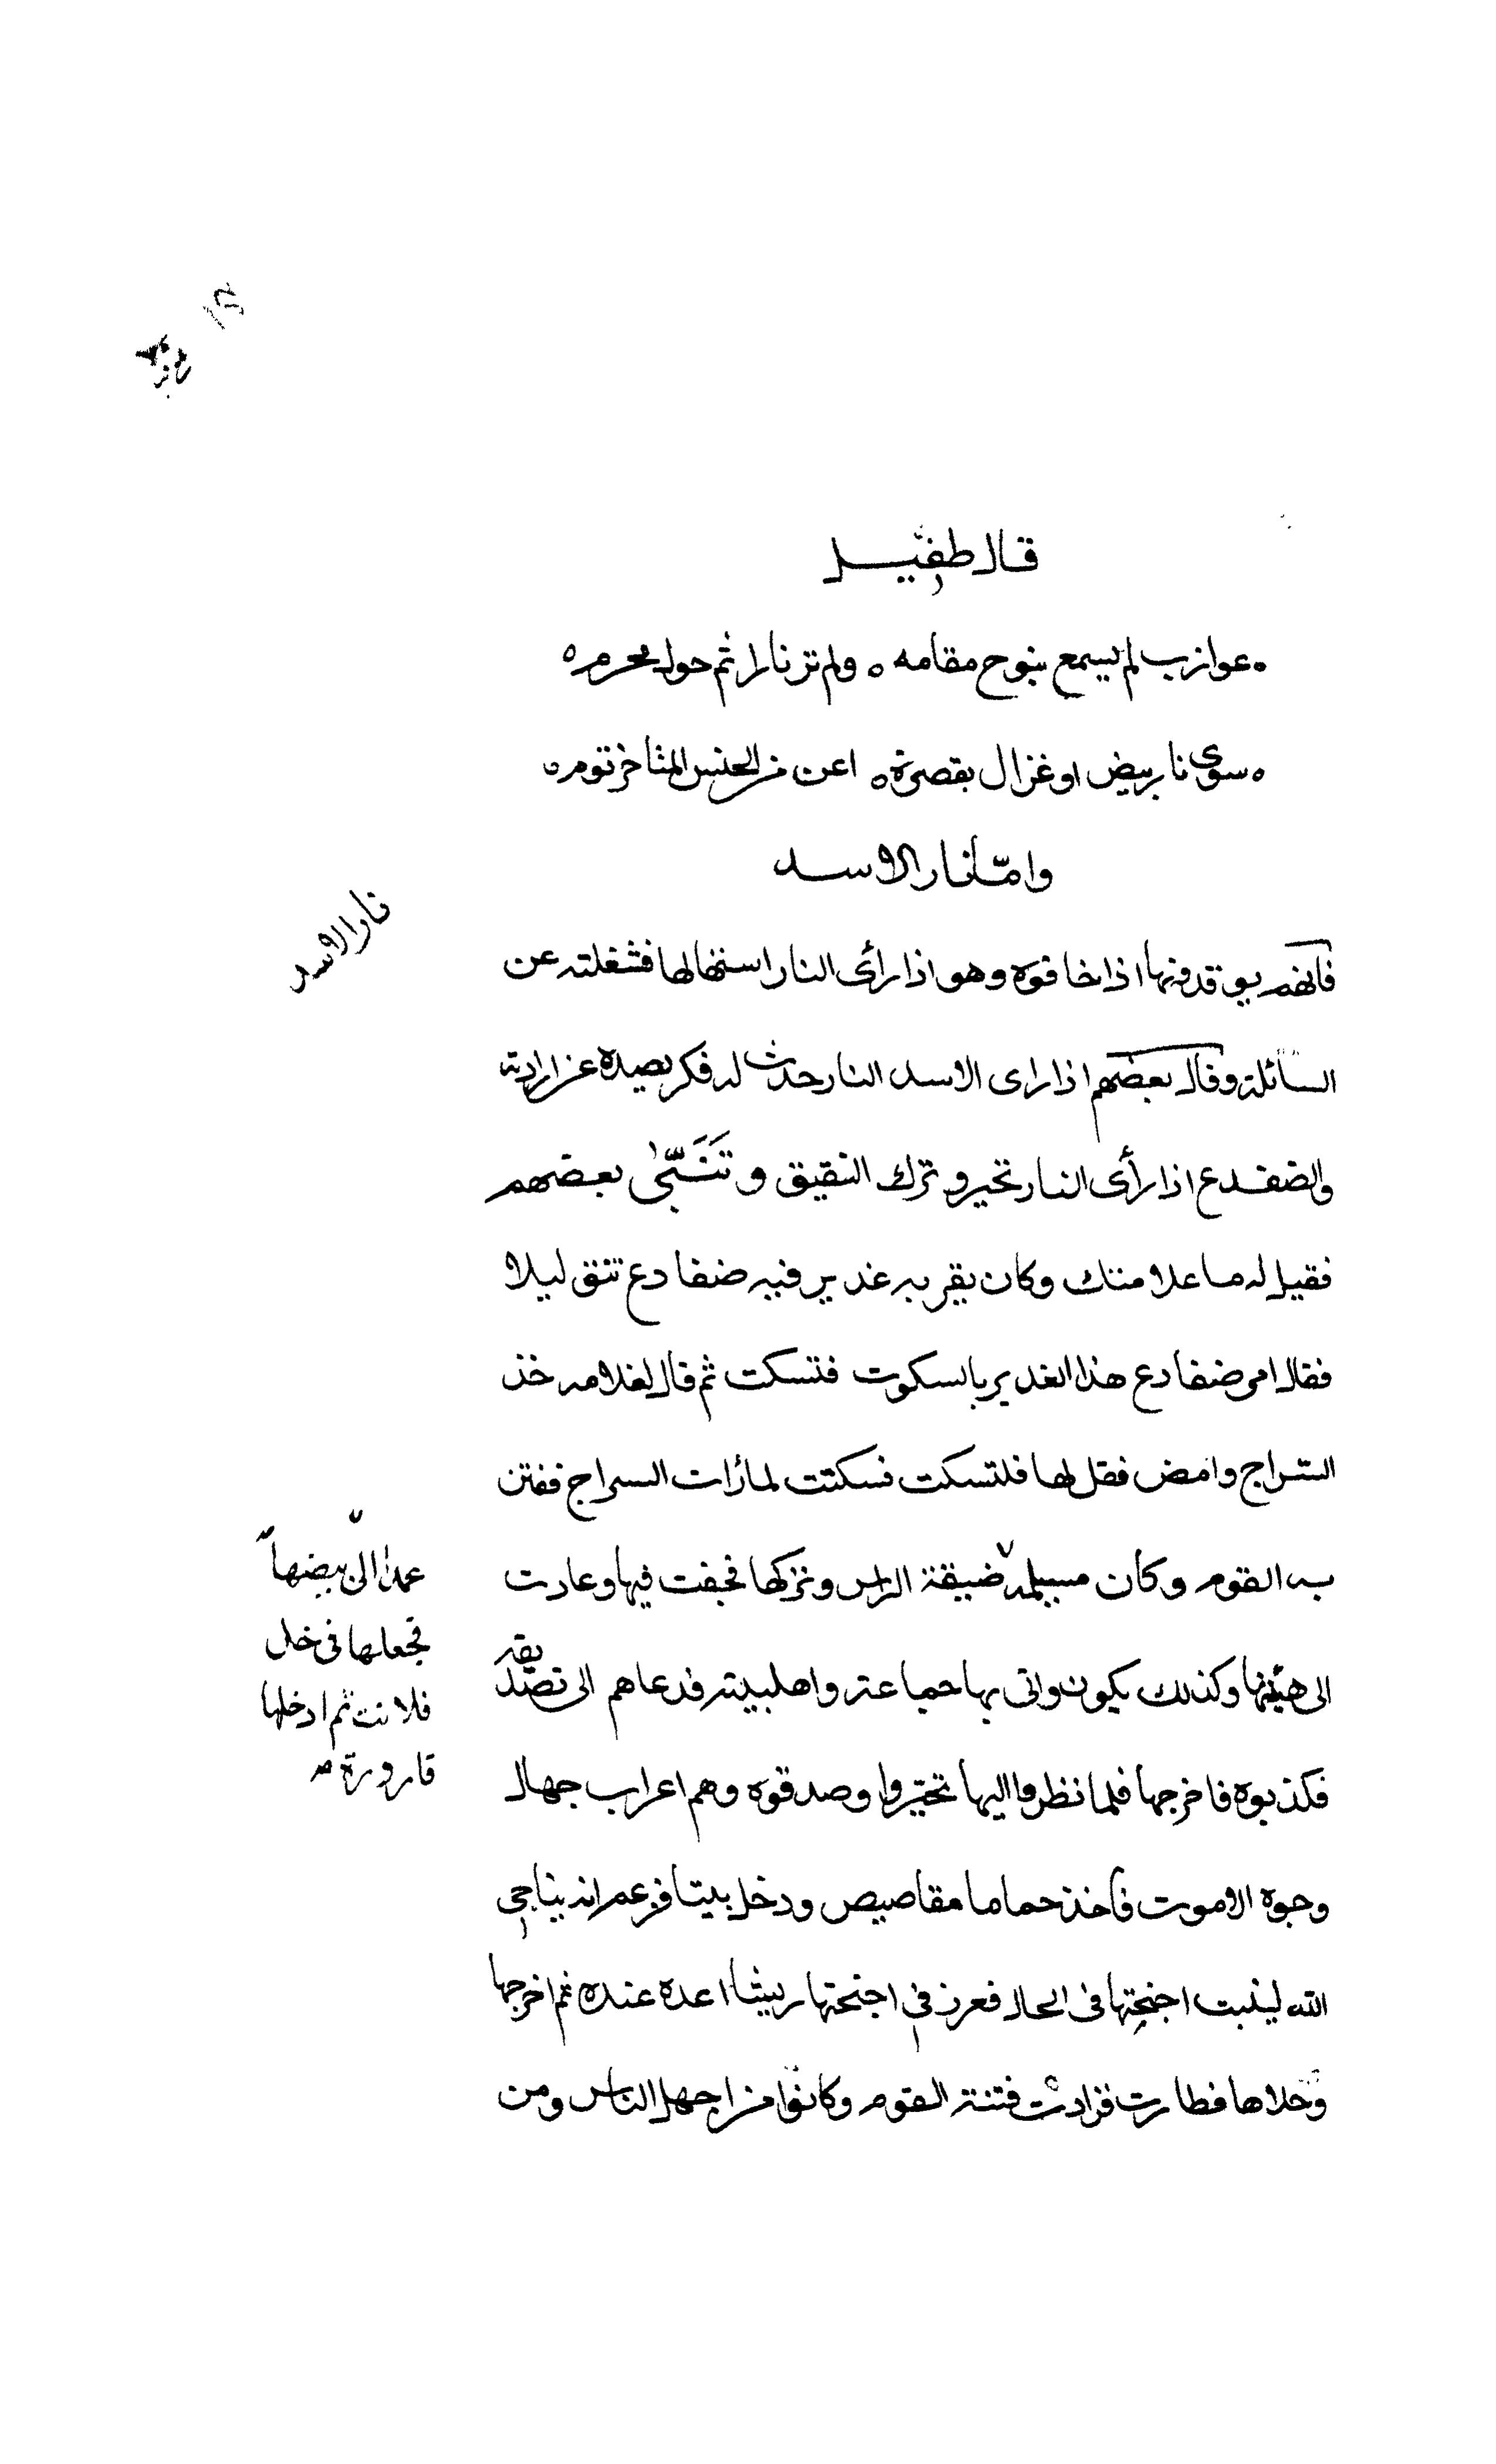 قال طفيل
ه عوازب لم يسمع نبوح مقامه ه ولم تر نارا ثم حول محرم ه
ه سوى نار بيض او غزال بقصرة ه اعن من الخنس المناخر توم ه
وامّا نار الاسد
نار الاسد
فانهم يوقدونها اذا خافوه وهو اذا رأى النار استهالها فشغلته عن
السائلة وقال بعضهم اذا راى الاسد النار حدث له فكر يصده عن ارادته
والضفدع اذا رأى النار تحير وترك النقيق وتَنَبّىٰ بعضهم
فقيل له ما علامتك وكان يقربه غدير فيه ضفادع تنق ليلا
فقال امر ضفادع هذا الغدير بالسكوت فتسكت ثم قال لغلامه خذ
السّراج وامض فقل لها فلتسكت فسكتت لما رأت السراج ففتن
به القوم وكان مسيلمة ضيقة الراس وتركها فجفت فيها وعادت
عمد الى بيضها
فجعلها فى خل
فلانت ثم ادخلها
قارورة صح
الى هيئتها وكذلك يكون واتى بها جماعة واهل بيته فدعاهم الى تصديقه
فكذبوه فاخرجها فلما نظروا اليها تحيّروا وصدقوه وهم اعراب جهال
وجوه الاموت فأخذ حماما مقاصيص ودخل بيتا فزعم انه يناجى
الله لينبت اجنحتها فى الحال فغرز فى اجنحتها ريشا اعده عنده ثم اخرجها
وخلاها فطارت فزادت فتنة القوم وكانوا من اجهل الناس ومن